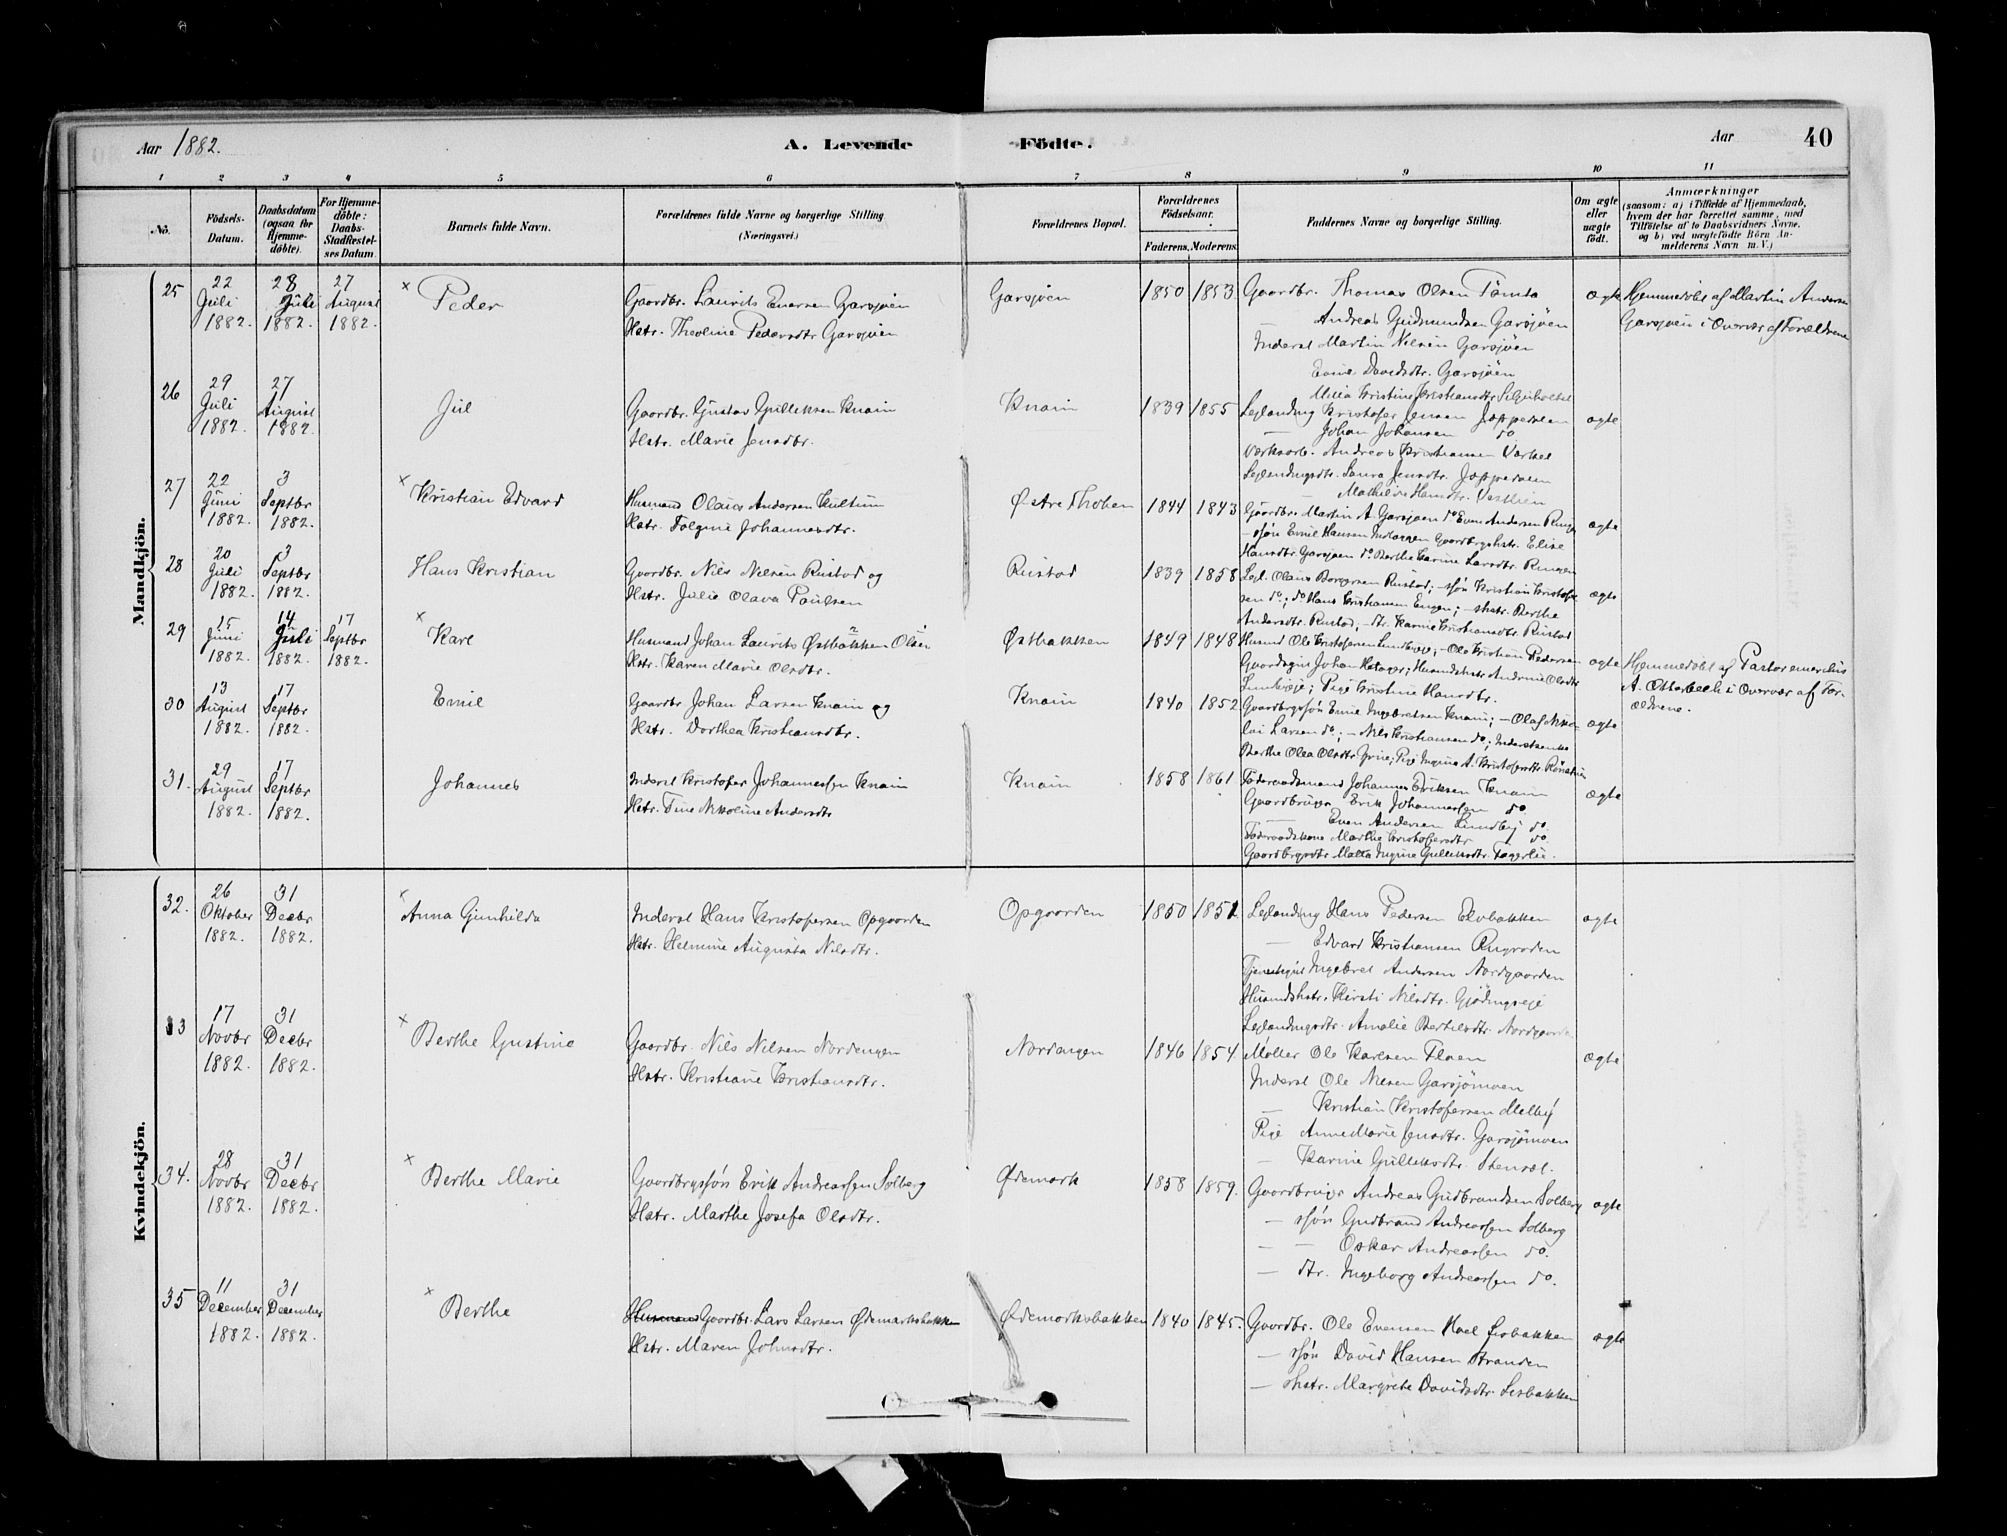 Aar 1882.
A. Levende Födte.
Aar
40
1 2 3 4 5 6 7 8 9 10 11
No.
Födsels-Datum.
Daabsdatum (ogsaa for Hjemmedöbte).
For Hjemmedöbte: Daabs-Stadfæstelses Datum.
Barnets fulde Navn.
Forældrenes fulde Navne og borgerlige Stilling (Næringsvei.)
Forældrenes Bopæl.
Forældrenes Födselsaar.
Faderens. Moderens.
Faddernes Navne og borgerlige Stilling.
Om ægte eller uægte födt.
Anmærkninger
(saasom: a) i Tilfælde af Hjemmedaab,
hvem der har forrettet samme, med
Tilföielse af to Daabsvidners Navne,
og b) ved uægtefödte Börn An-
melderens Navn m. V.)
Mandkjön.
25
22 Juli 1882.
28 Juli 1882.
27 August 1882.
× Peder
Gaardbr. Laurits Enersen Garsjøen
Hstr. Theoline Pedersdtr Garsjøen
Garsjøen
1850 1853
Gaardbr. Thomas Olsen Tomta
Andreas Gudmundsen Garsjøen
Inderst Martin Nilsen Garsjøen
Davidsdtr. Garsjøen
Kristine Kristiansdtr.
ægte
Hjemmedöbt af Martin Andersen
Garsjøen i Overvær af Forældrene
26
29 Juli 1882.
27 August 1882.
Jul
Gaardbr. Gustav Gulleksen Knain
Hstr. Marie Jensdtr.
Knain
1839 1855
Leilænding Kristofer Jensen Joppersen
— Johan Johansen do
Værksarb. Andreas Kristiansen
Leilændingsdtr. Laura Jensdtr.
Mathilde Hansdtr.
ægte
27
22 Juni 1882.
3 Septbr 1882.
× Kristian Edvard
Husmand Olaus Andersen Kultum
Hstr. Johannesdtr.
Østre Thoben
1844 1843
Gaardbr. Martin A. Garsjøen do Even Andersen
-søn Emil Hansen Gaardbrgshstr. Elise
Hansdtr. Garsjøen do Berthe Karine Larsdtr. Rungen
ægte
28
20 Juli 1882.
3 Septbr 1882.
Hans Kristian
Gaardbr. Nils Nilsen Rustad og
Hstr. Julie Olava Paulsen
Rustad
1839 1858
Leil. Olaus Borgersen Rustad; -søn Kristian Kristofer-
sen do; do Hans Kristiansen Engen; -shstr. Berthe
Andersdtr. Rustad; -dtr. Karnie Kristiansdtr. Rustad
ægte
29
15 Juni 1882.
14 Juli 1882.
17 Septbr 1882.
× Karl
Husmand Johan Laurits Østbakken Olsen
Hstr. Karen Marie Olsdtr.
Østbakken
1849 1848
Husmd Ole Kristofersen; - Ole Kristian Pedersen
Johan; Husmdshstr Andrine Olsdtr
; Pige Kristine Hansdtr.
ægte
Hjemmedöbt af Pastor emeritus
A. Otterbech i Overvær af For-
ældrene.
30
13 August 1882.
17 Septbr 1882.
Emil
Gaardbr Johan Larsen Knain og
Hstr. Dorthea Kristiansdtr.
Knain
1840 1852
Gaardbrgssøn Emil Ingebretsen Knain; - Olaf Niko-
lai Larsen do; - Nils Kristiansen do; Inderstenke
Berthe Olea Olsdtr; Pige Ingine A. Kristofersdtr
ægte
31.
29 August 1882.
17 Septbr 1882.
Johannes
Inderst Kristofer Johannessen Knain
Hstr. Tine Nikoline Andersdtr
Knain
1858 1861
Føderaadsmand Johannes Eriksen Knain
Gaardbruger Erik Johannessen do
— Even Andersen Lundby do.
Føderaadskone Marthe Kristofersdtr do.
Gaardbrgsdtr Matea Ingine Gulleksdtr. Fagerlie.
ægte
Kvindekjön.
32.
26 Oktober 1882.
31 Decbr 1882.
× Anna Gunhilda
Inderst Hans Kristofersen Opgaarden
Hstr. Helmine Augusta Nilsdtr.
Opgaarden
1850 1851
Leilænding Hans Pedersen Elvbakken
— Edvard Kristiansen
Tjenestegut Ingebret Andersen Nordgaarden
Husmdshstr. Kirsti Nilsdtr.
Leilændingsdtr. Amalie Bertilsdtr. Nordgaarden
ægte
33
17 Novbr 1882.
31 Decbr 1882.
× Berthe Gustine
Gaardbr. Nils Nilsen Nordengen
Hstr. Kristiane Kristiansdtr.
Nordengen
1846 1854
Møller Ole Karlsen Floen
Inderst Ole Nilsen Garsjömoen
— Kristian Kristofersen Melby
Pige Anne Marie Jensdtr. Garsjömoen
— Karine Gulleksdtr. Stensæt.
ægte
34.
28 Novbr 1882.
31 Decbr 1882.
× Berthe Marie
Gaardbrgssøn Erik Andreassen Solberg
Hstr. Marthe Josefa Olsdtr.
Ødemark
1858 1859.
Gaardbruger Andreas Gudbrandsen Solberg
— søn Gudbrand Andreassen Solberg
— — Oskar Andreassen do.
— dtr. Ingeborg Andreassen do.
ægte
35
11 December 1882.
31 December 1882.
× Berthe
Husmand Gaardbr. Lars Larsen Ødemarksbakken
Hstr. Maren Johnsdtr.
Ødemarksbakken
1840 1845.
Gaardbr. Ole Evensen Lisbakken
— søn David Hansen Stranden
— shstr. Margrete Davidsdtr. Lisbakken
ægte